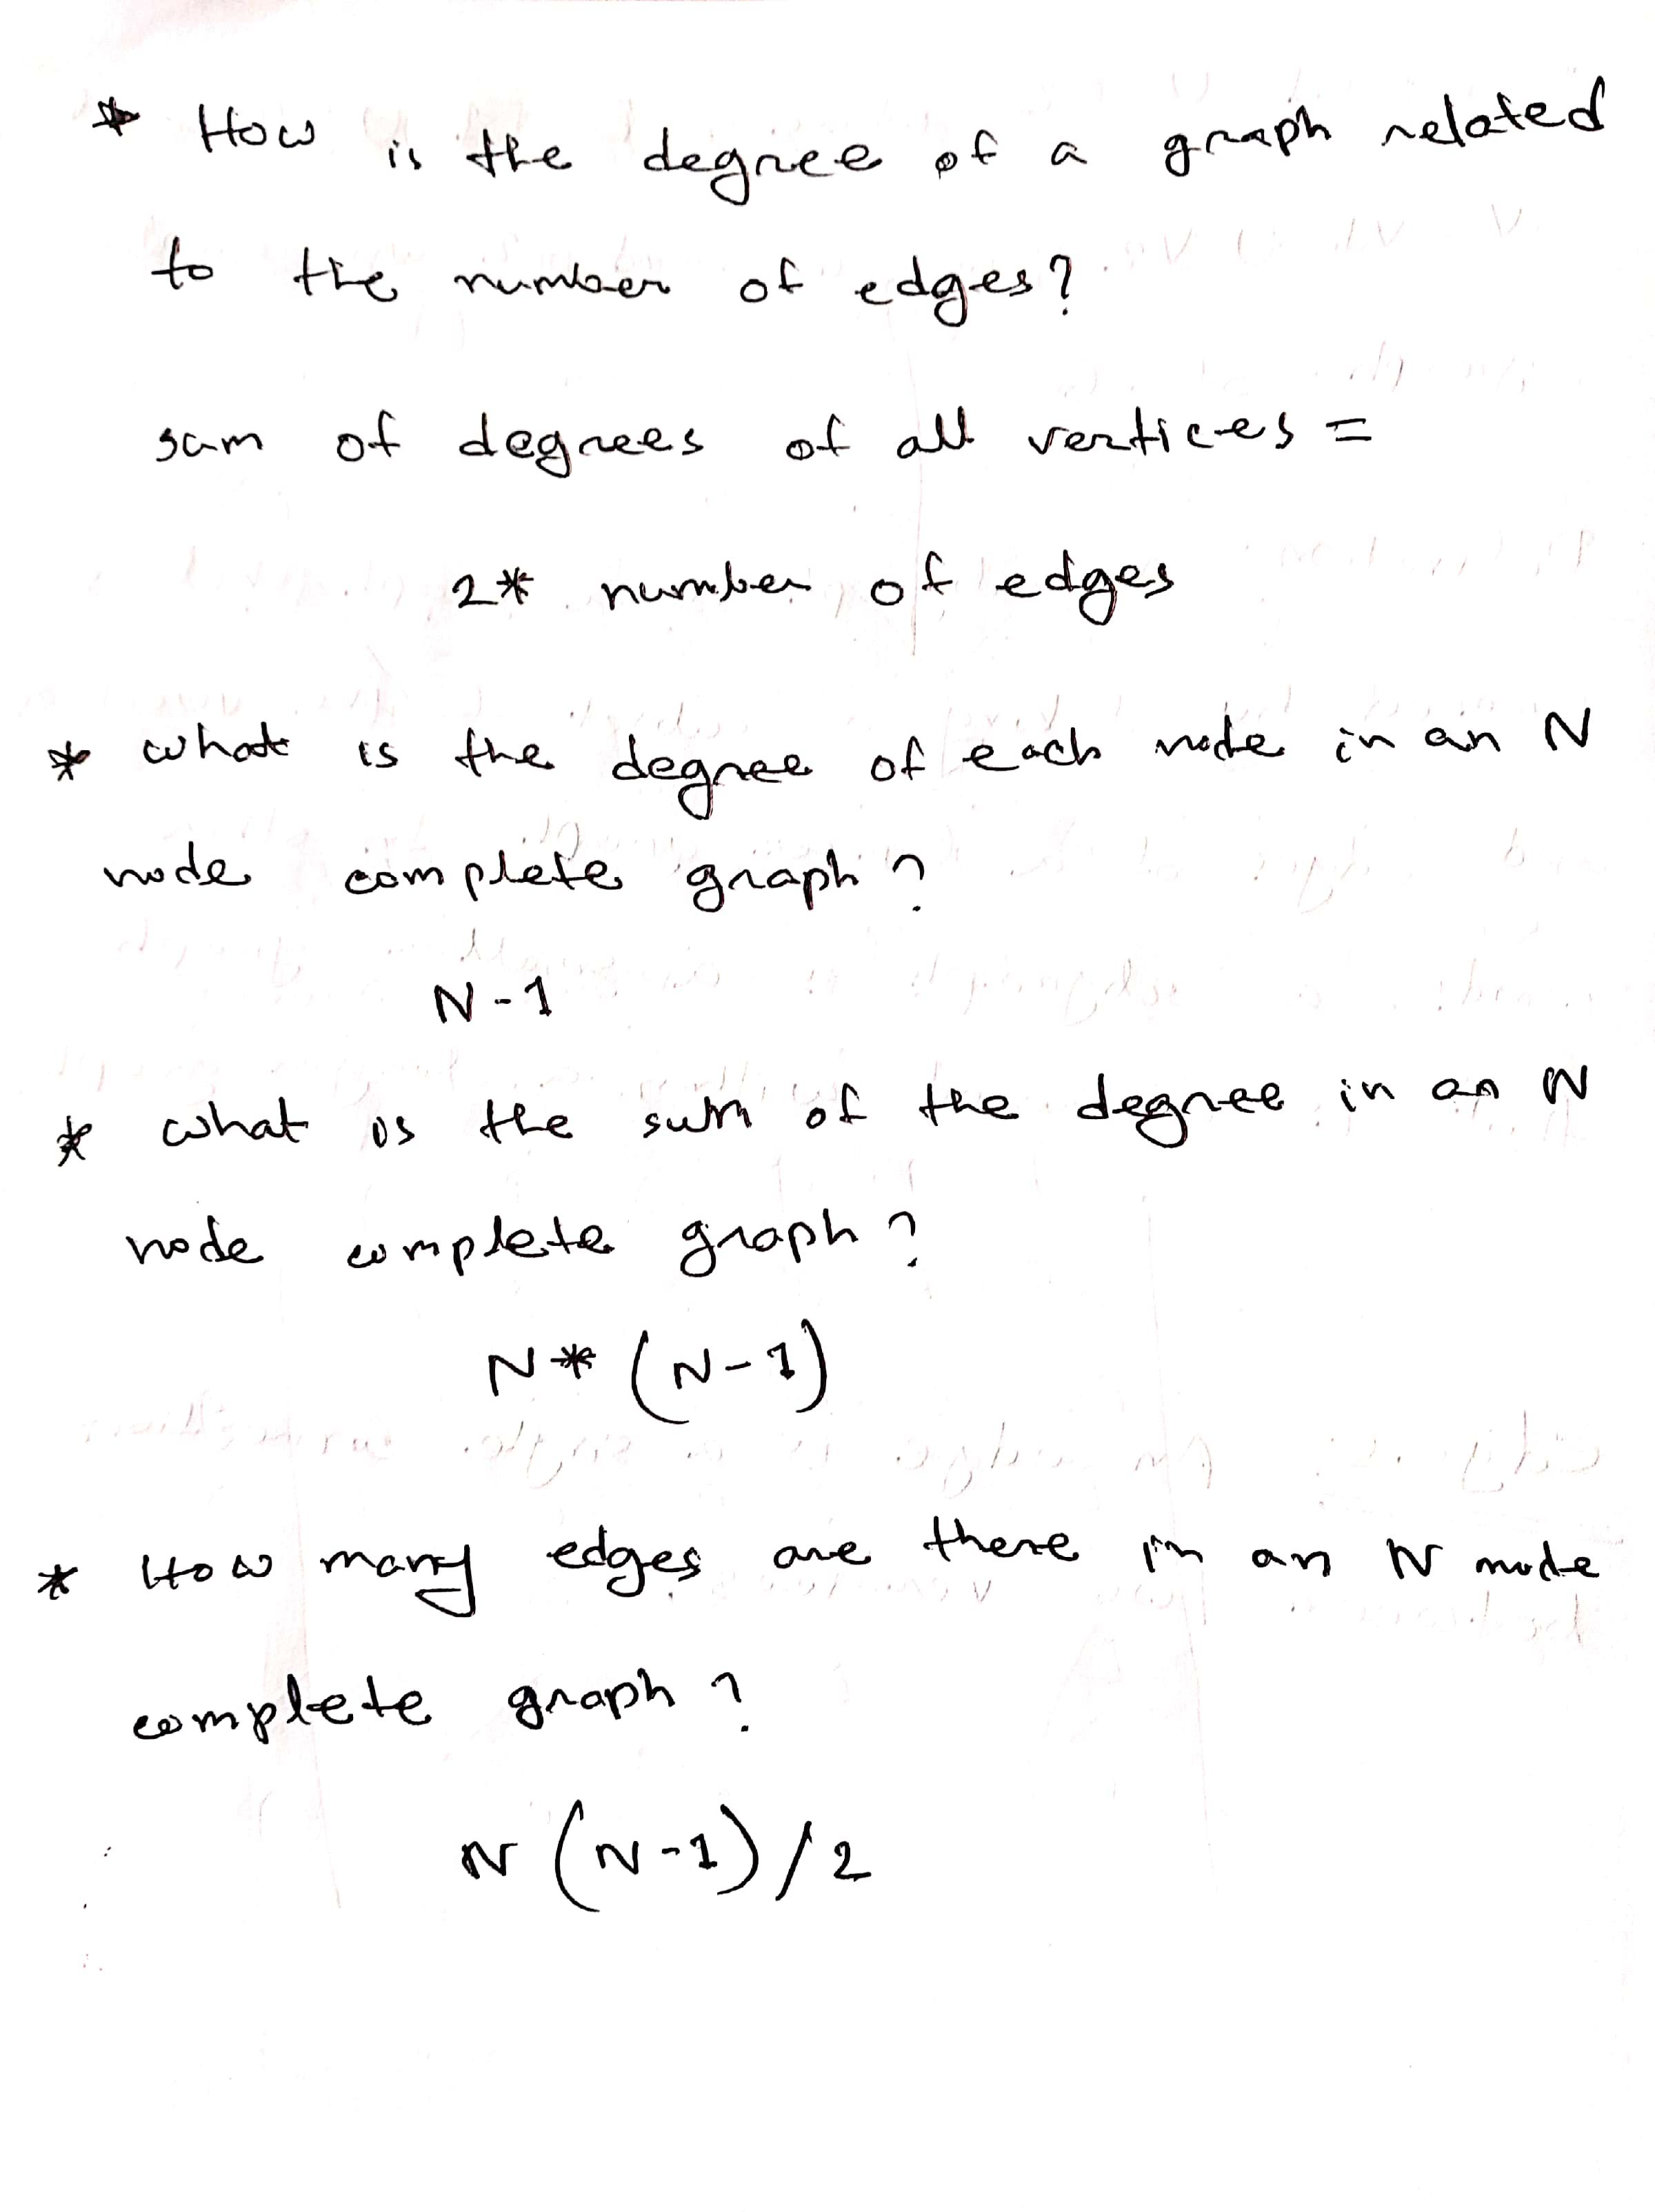 * How is the degree of a graph related
to the number of edges?
sum of degrees of all vertices =
2* number of edges
* what is the degree of each node in an N
node complete graph?
N-1
* what is the sum of the degree in an N
node complete graph?
N* (N-1)
* How many edges are there in an N node
complete graph?
N (N-1)/2